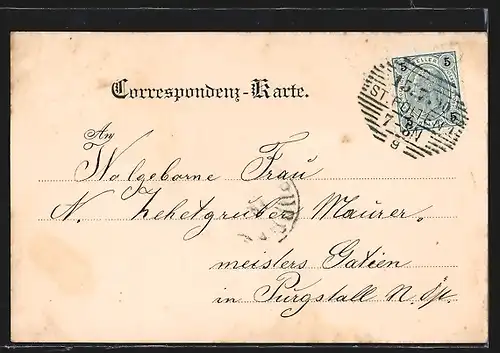 Correspondenz-Karte.
5
5
15.7.
ST. PÖLTEN
7-8N
9
An
Wolgeborne Frau
N. Zehetgruber Maurer-
meisters Gatien
in Purgstall N. Öst.
PURG